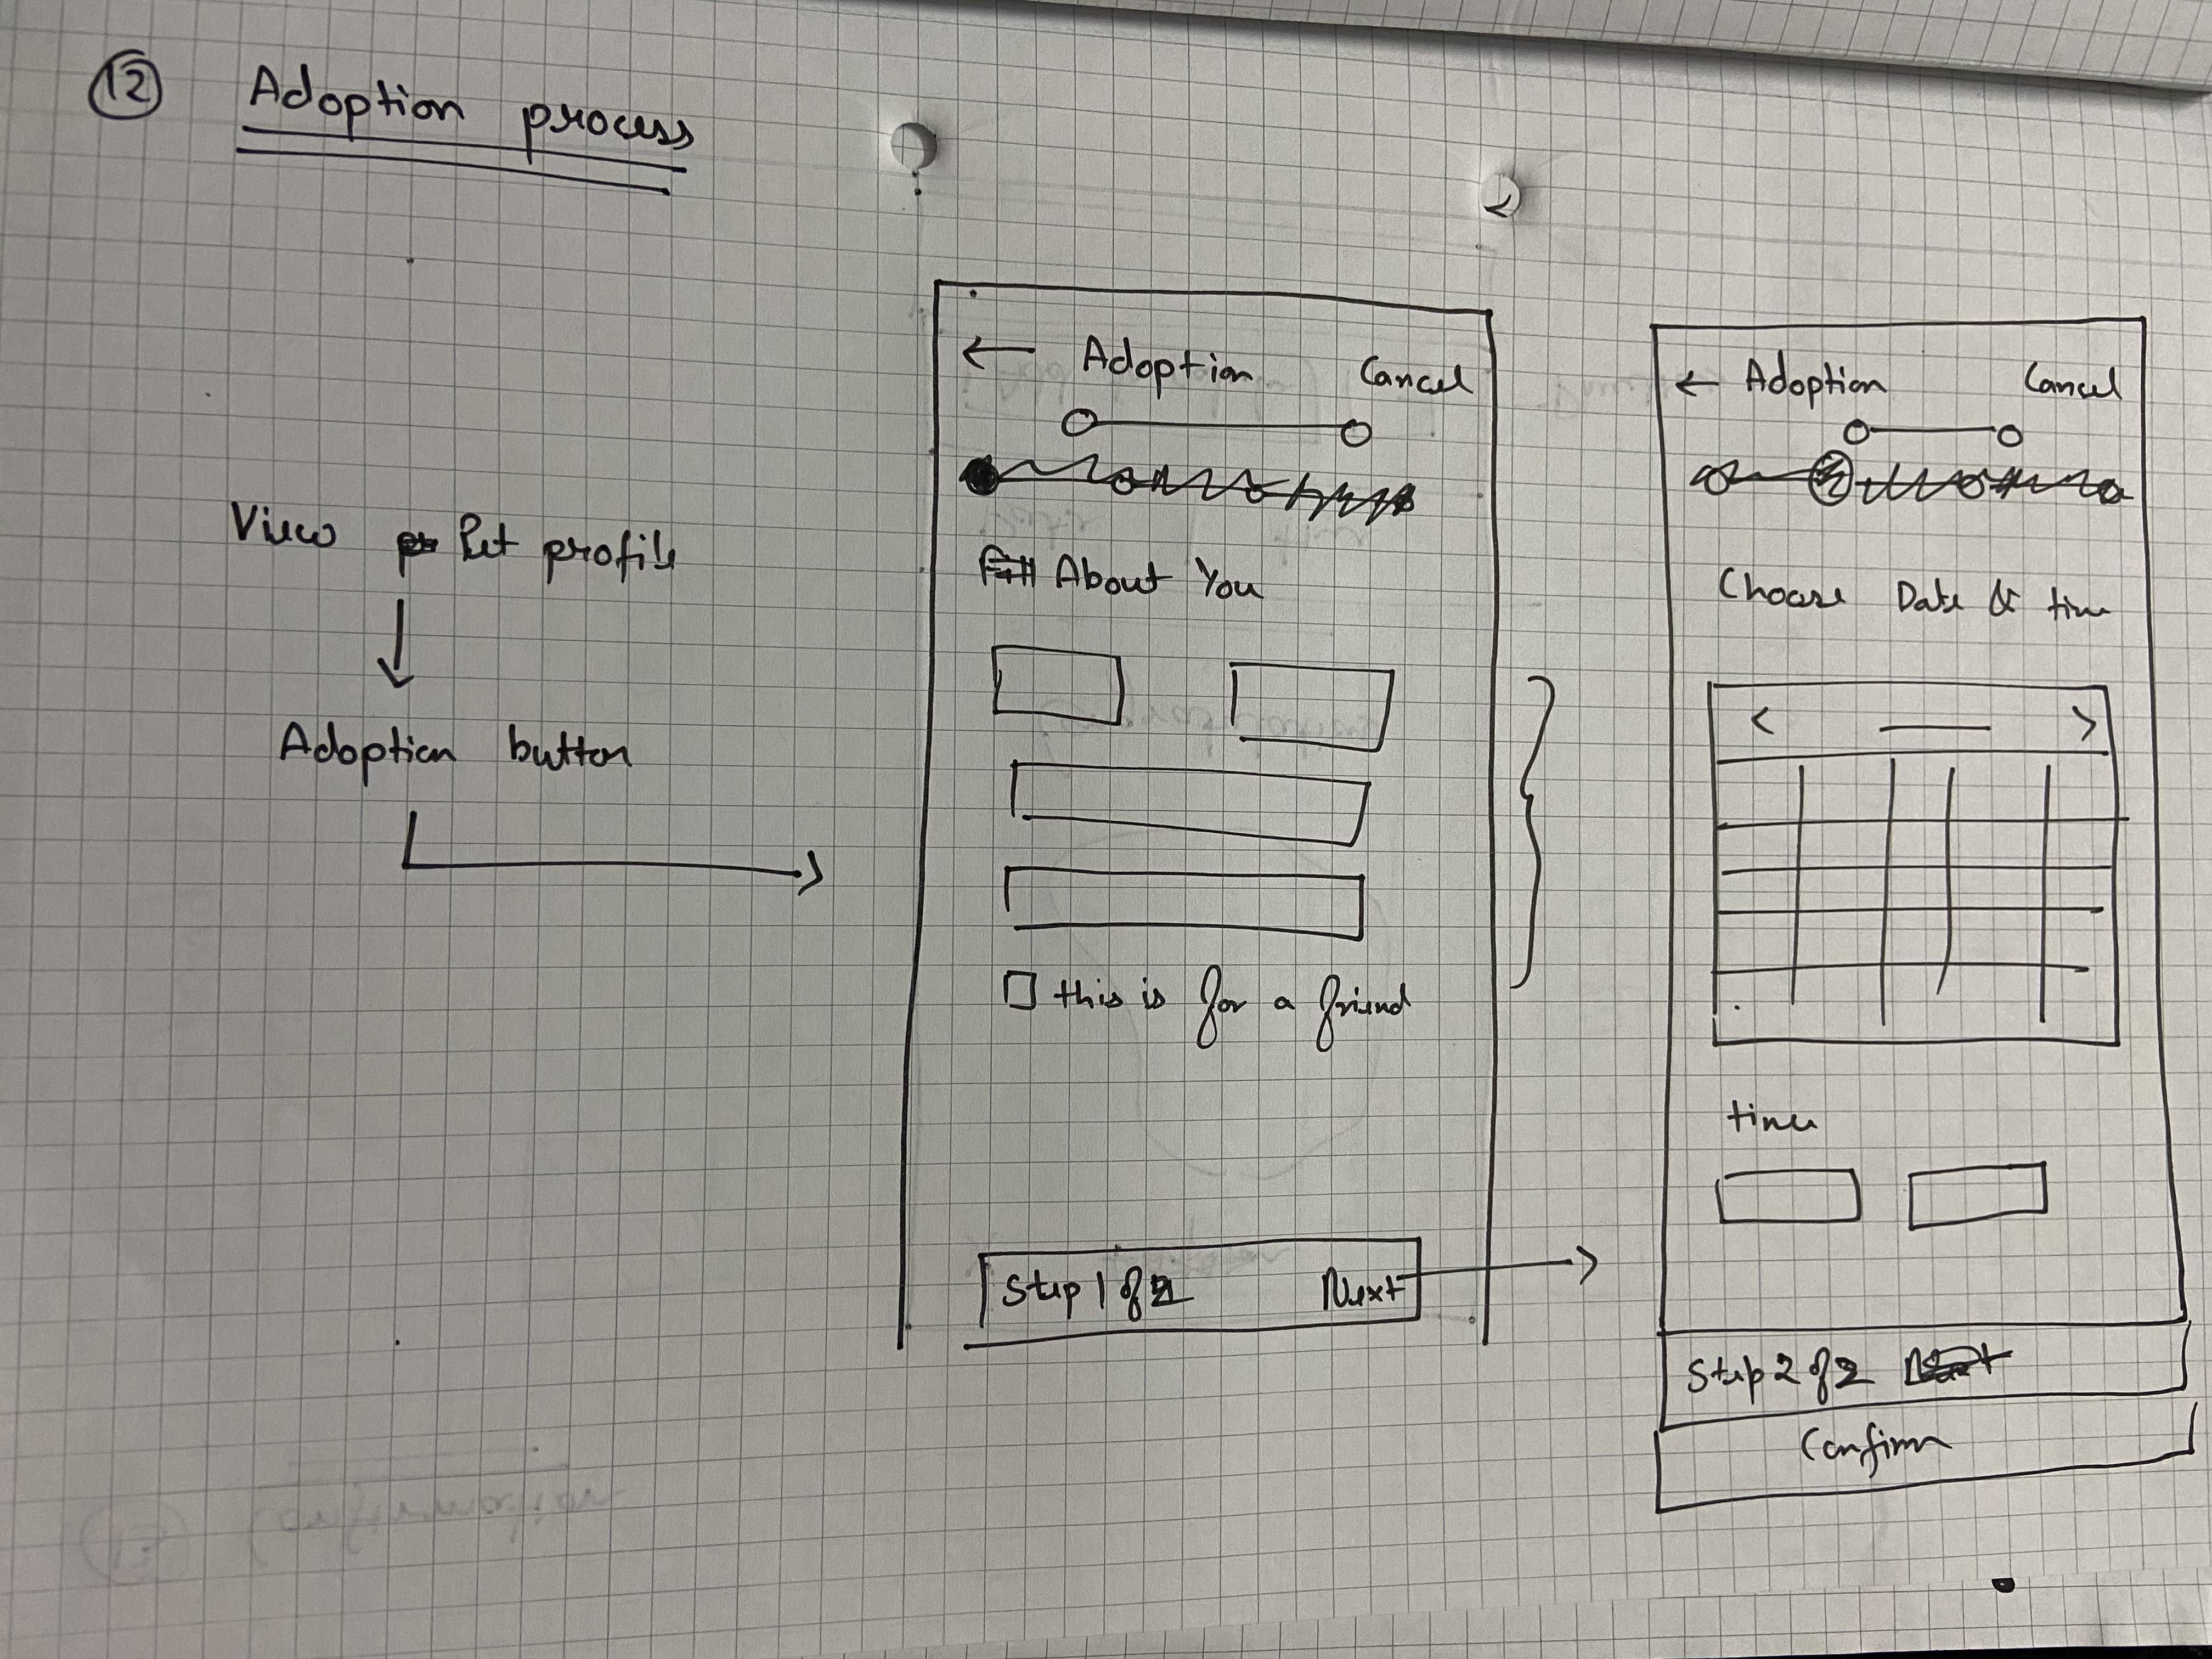 12 Adoption process
View Pet profile
Adoption button
← Adoption Cancel
About You
this is for a friend
Step 1 of 2 Next
← Adoption Cancel
Choose Date & time
< >
time
Step 2 of 2
Confirm